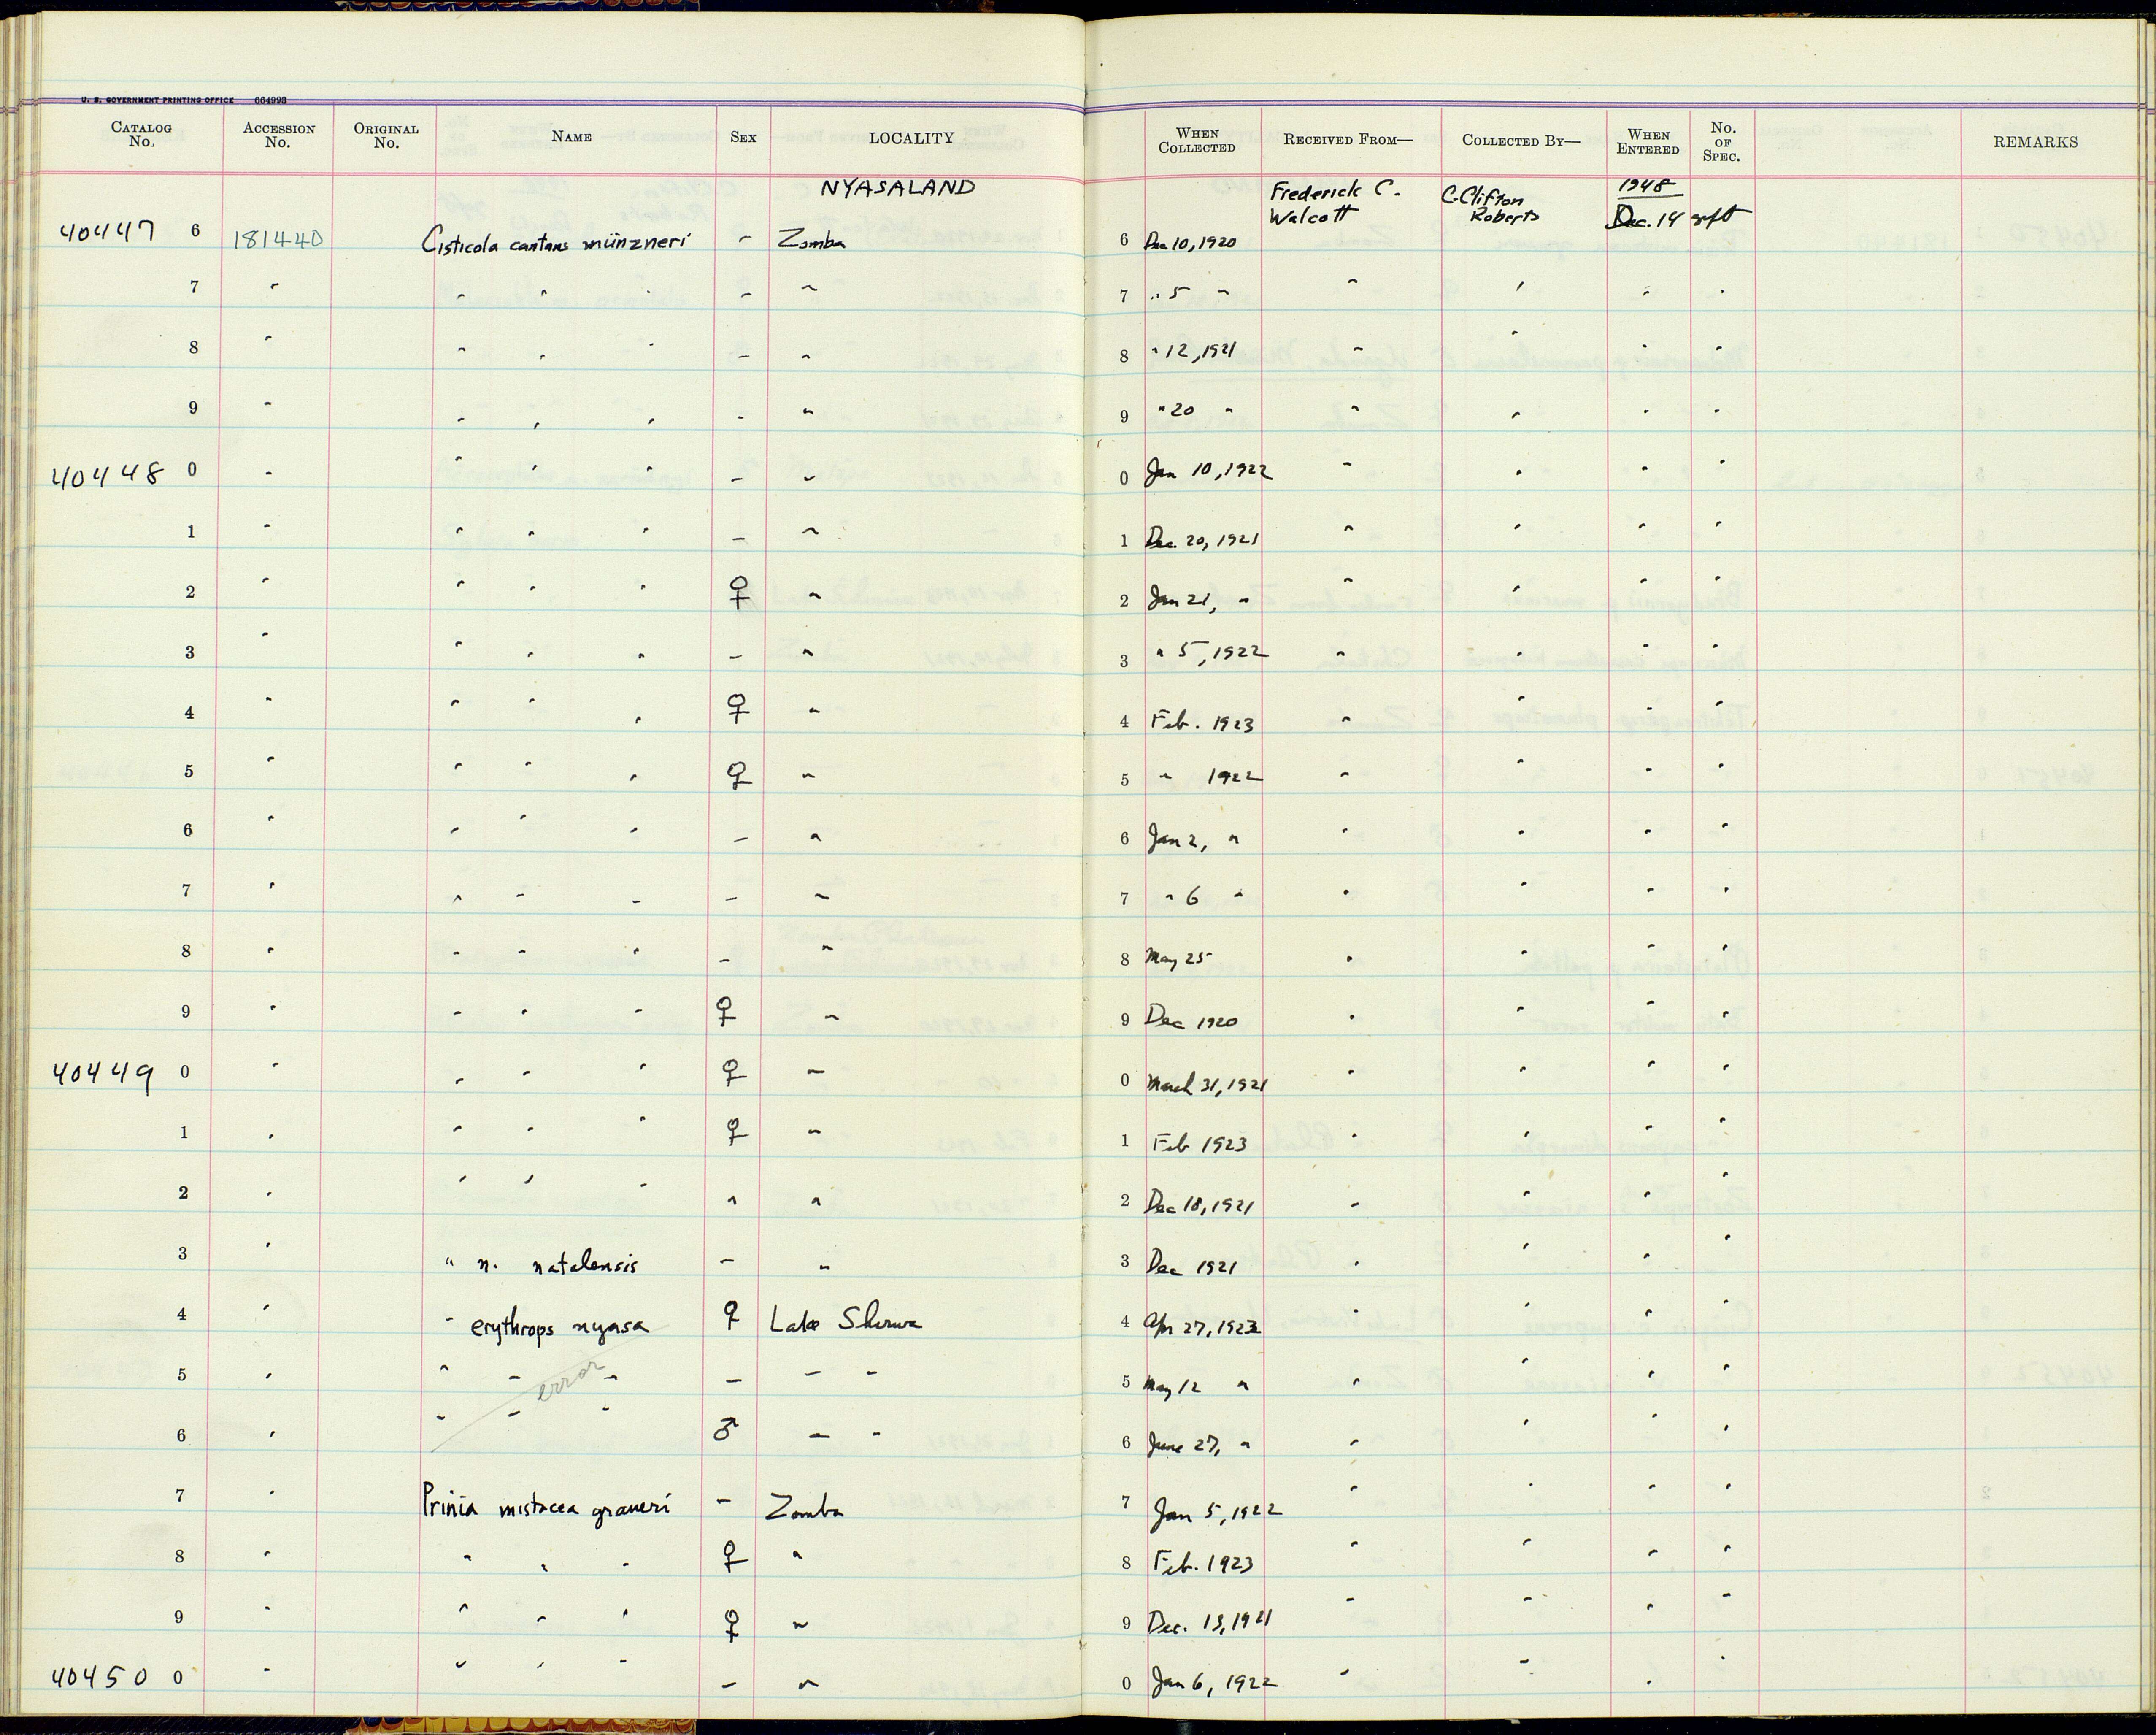 U. S. GOVERNMENT PRINTING OFFICE 664993
CATALOG No. ACCESSION No. ORIGINAL No. NAME SEX LOCALITY WHEN COLLECTED RECEIVED FROM— COLLECTED BY— WHEN ENTERED No. OF SPEC. REMARKS
NYASALAND Frederick C. Walcott C. Clifton Roberts 1948
40447 6 181440 Cisticola cantans münzneri - Zomba 6 Dec 10, 1920 Dec. 14
7 " " " " - " 7 " 5 " " " " "
8 " " " " - " 8 " 12, 1921 " " " "
9 " " " " - " 9 " 20 " " " " "
40448 0 " " " " - " 0 Jan 10, 1922 " " " "
1 " " " " - " 1 Dec. 20, 1921 " " " "
2 " " " " ♀ " 2 Jan 21, " " " " "
3 " " " " - " 3 " 5, 1922 " " " "
4 " " " " ♀ " 4 Feb. 1923 " " " "
5 " " " " ♀ " 5 " 1922 " " " "
6 " " " " - " 6 Jan 2, " " " " "
7 " " " " - " 7 " 6 " " " " "
8 " " " " - " 8 May 25 " " " "
9 " " " " ♀ " 9 Dec 1920 " " " "
40449 0 " " " " ♀ " 0 March 31, 1921 " " " "
1 " " " " ♀ " 1 Feb 1923 " " " "
2 " " " " " " 2 Dec 18, 1921 " " " "
3 " " n. natalensis - " 3 Dec 1921 " " " "
4 " " erythrops nyasa ♀ Lake Shirwa 4 Apr 27, 1923 " " " "
5 " " " " - " " 5 May 12 " " " " "
error
6 " " " " ♂ " " 6 June 27, " " " " "
7 " Prinia mistacea graueri - Zomba 7 Jan 5, 1922 " " " "
8 " " " " ♀ " 8 Feb. 1923 " " " "
9 " " " " ♀ " 9 Dec. 13, 1921 " " " "
40450 0 " " " " - " 0 Jan 6, 1922 " " " "